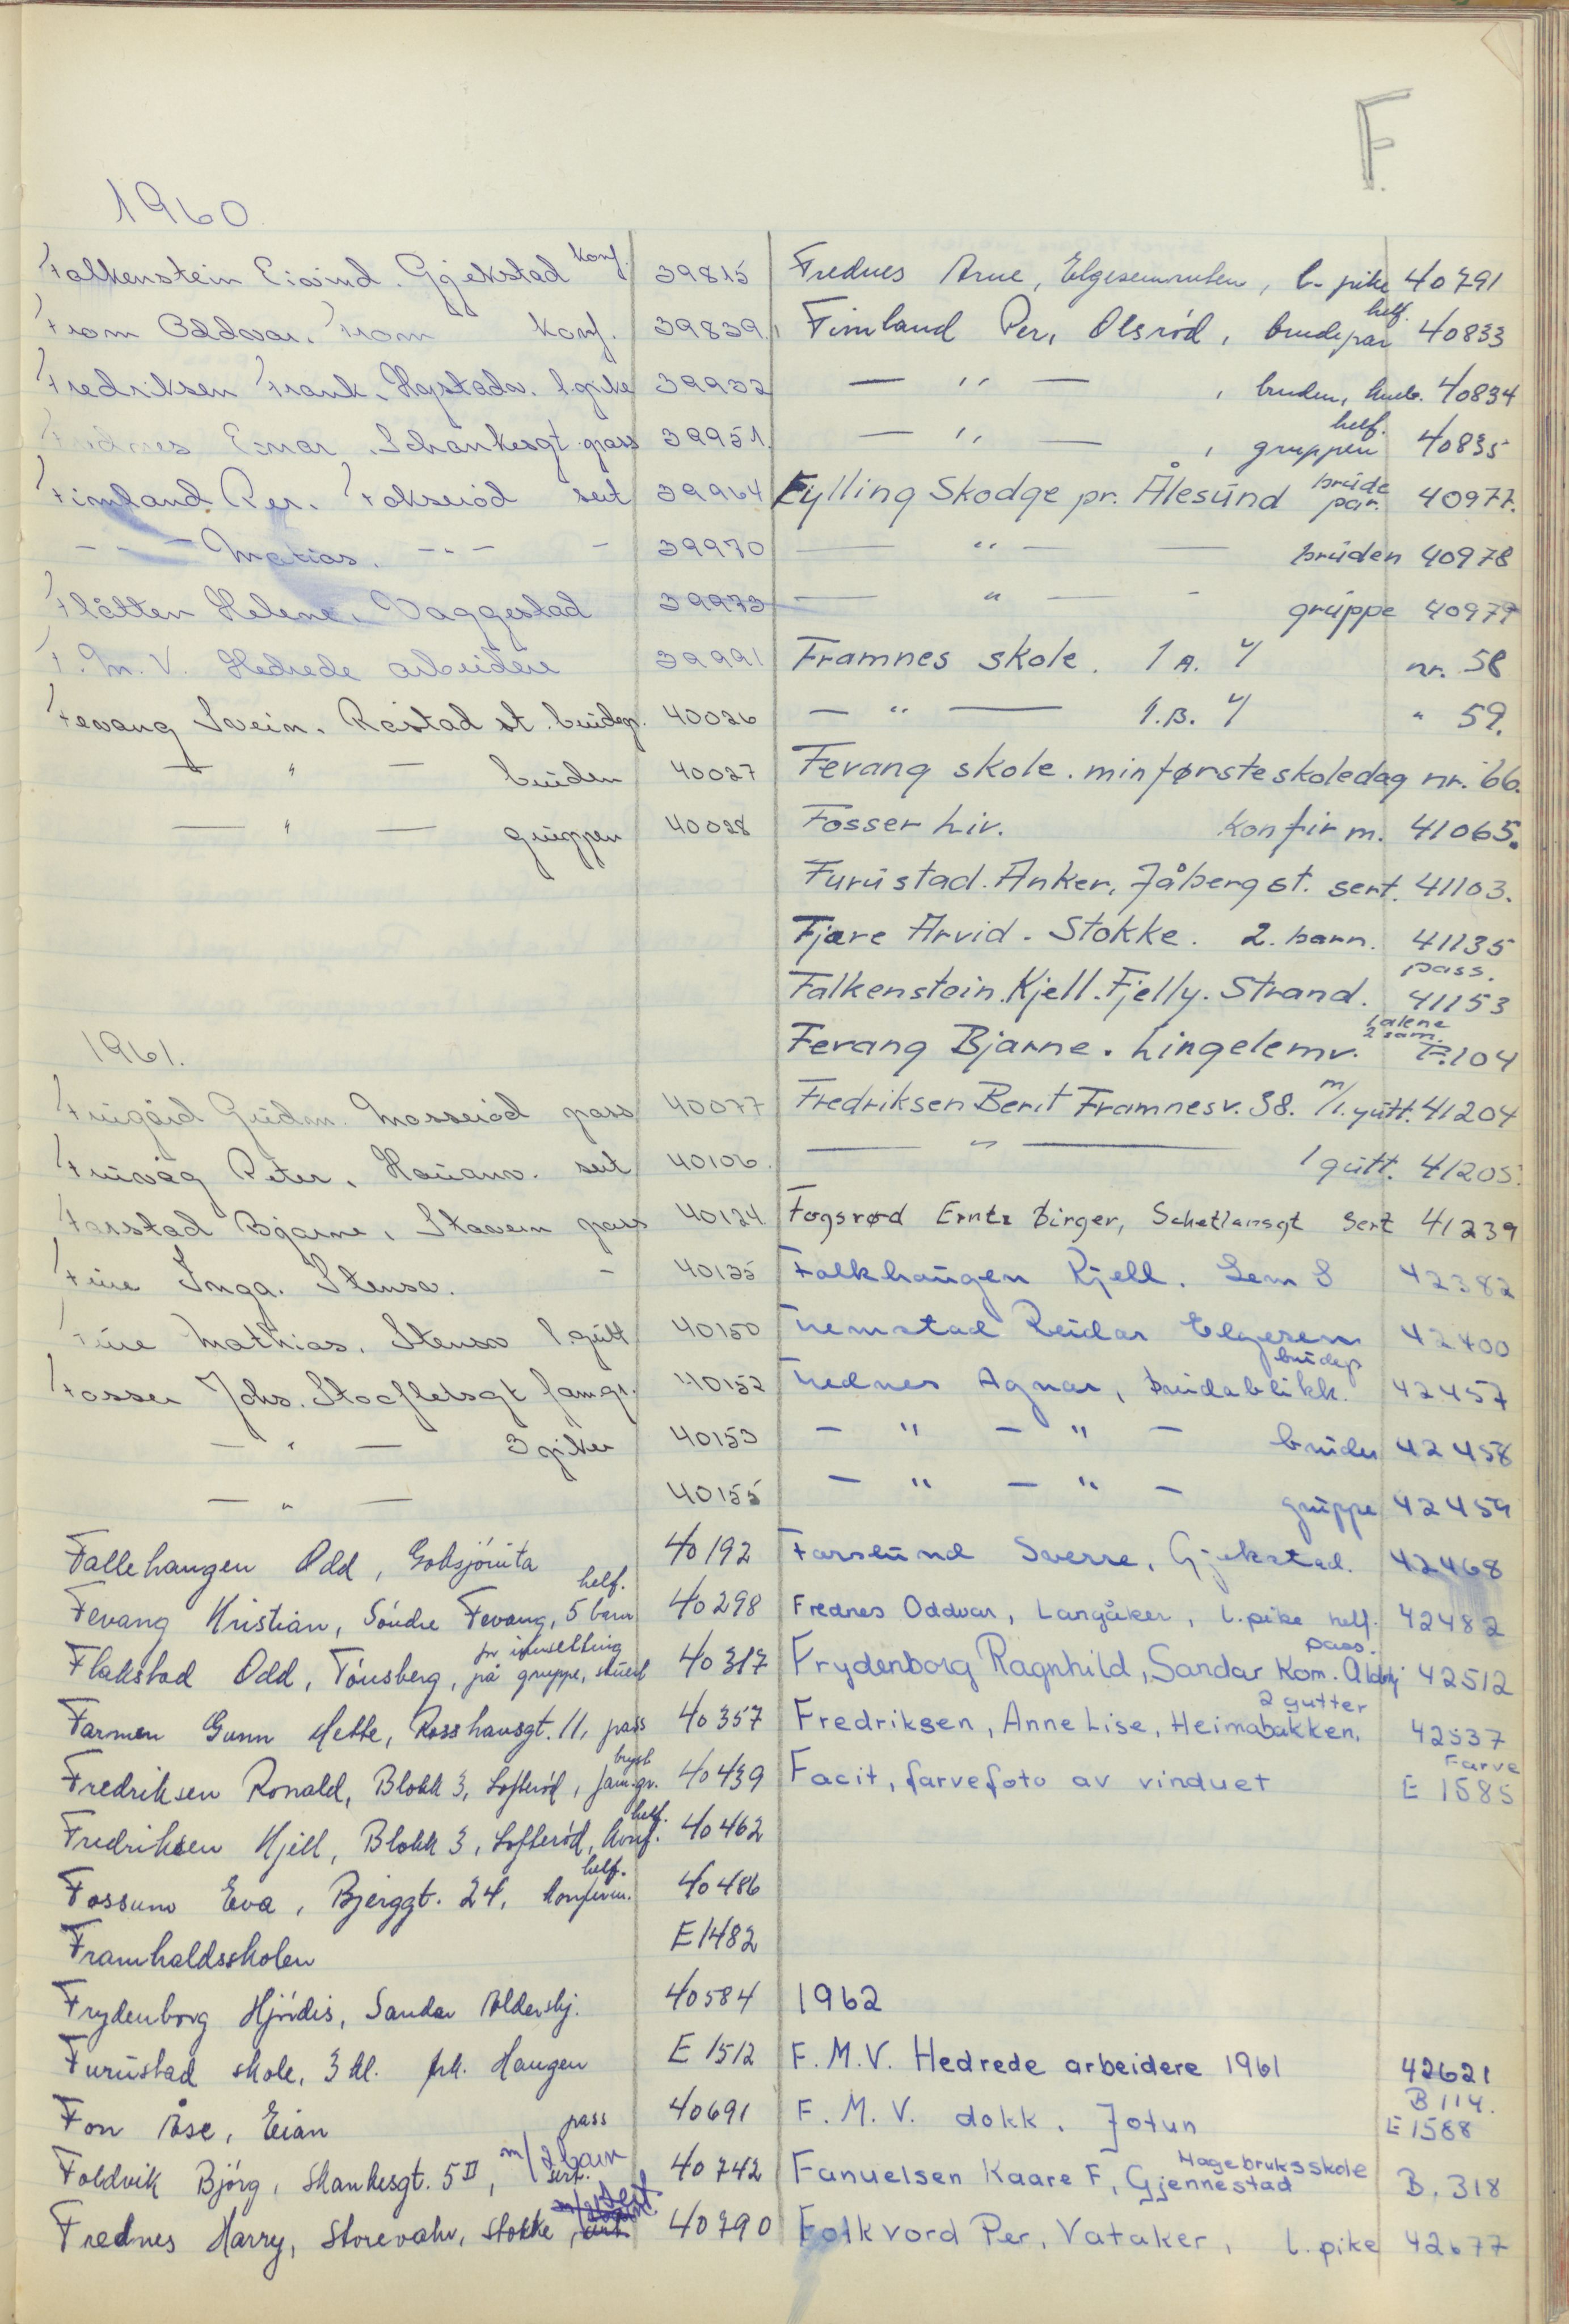 F.
1960.
Falkenstein Eivind. Gjekstad konf. 39815
From Oddvar. From konf. 39839.
Fredriksen Frank. Hystadv. l.pike 39932
Frednes Einar. Schankesgt. pass 39951
Fimland Per. Fokserød sert 39964
- - - Matias. - " - - 39970
Flåtten Helene. Vaggestad 39973
F.M.V. Hedrede arbeidere 39991
Fevang Svein. Råstad st. brudep. 40026
— " — bruden 40027
— " — gruppen 40028
1961.
Furgård Gudm. Mosserød pass 40077
Furvåg Peter. Hauanv. sert 40106.
Farstad Bjarne, Stavern pass 40124
Fure Inga. Stensv. - 40135
Fure Mathias. Stensv l.gutt 40150
Fosser Johs. Stockfletsgt fam.gr. 40152
— " — 3 piker 40153
— " — 40155
Fallehaugen Odd, Goksjöruta 40192
Fevang Kristian, Söndre Fevang, 5 barn helf. 40298
Flakstad Odd, Tönsberg, på gruppe, for innsetting 40317
Farmen Gunn Mette, Rosshausgt. 11, pass 40357
Fredriksen Ronald, Blokk 3, Lofteröd, fam.gr. bryst 40439
Fredriksen Kjell, Blokk 3, Lofteröd, konf. helf. 40462
Fossum Eva, Bjerggt. 24, konfirm. helf. 40486
Framhaldsskolen E1482
Frydenborg Hjördis, Sandar Aldershj. 40584
Furustad skole, 3 kl. frk. Haugen E 1512
Fon Åse, Eian pass 40691
Foldvik Björg, Skankesgt. 5 II, m/2 barn sert. 40742
Frednes Harry, Storevahr, Stokke, sert 40790
Frednes Arne, Elgesemruten, l. pike 40791
Fimland Per, Olsröd, brudepar helf. 40833
— " — , bruden, kneb. 40834
— " — , gruppen helf. 40835
Fylling Skodge pr. Ålesund brude par. 40977.
— " — — bruden 40978
— " — - gruppe 40979
Framnes skole. 1 A. 4 nr. 58
— " — 1.B. 4 " 59.
Fevang skole. min første skoledag nr. 66.
Fosser Liv. Konfirm. 41065.
Furustad. Anker, Jåberg st. sert. 41103.
Fjære Arvid. Stokke. 2. barn. 41135
Falkenstein. Kjell. Fjelly. Strand. pass. 41153
Fevang Bjarne. Lingelemv. 1 alene 2 sam. P.104
Fredriksen Berit Framnesv. 38. m/1. gutt. 41204
— " — 1 gutt. 41205.
Fogsrød Erntz Birger, Schetlansgt Sert 41239
Falkhaugen Kjell. Lem S 42382
Fremstad Reidar Elgesem 42400
Frednes Agnar, Breidablikk. brudep 42457
- " - " - bruden 42458
- " - " - gruppe 42459
Farslund Sverre, Gjekstad. 42468
Frednes Oddvar, Langåker, l.pike helf. 42482
Frydenborg Ragnhild, Sandar Kom. Aldershj pass. 42512
Fredriksen, Anne Lise, Heimabakken. 2 gutter 42537
Facit, farvefoto av vinduet Farve E 1585
1962
F.M.V. Hedrede arbeidere 1961 42621
B 114.
F.M.V. dokk. Jotun E1588
Fanuelsen Kaare F, Gjennestad Hagebruksskole B. 318
Folkvord Per, Vataker, l. pike 42677